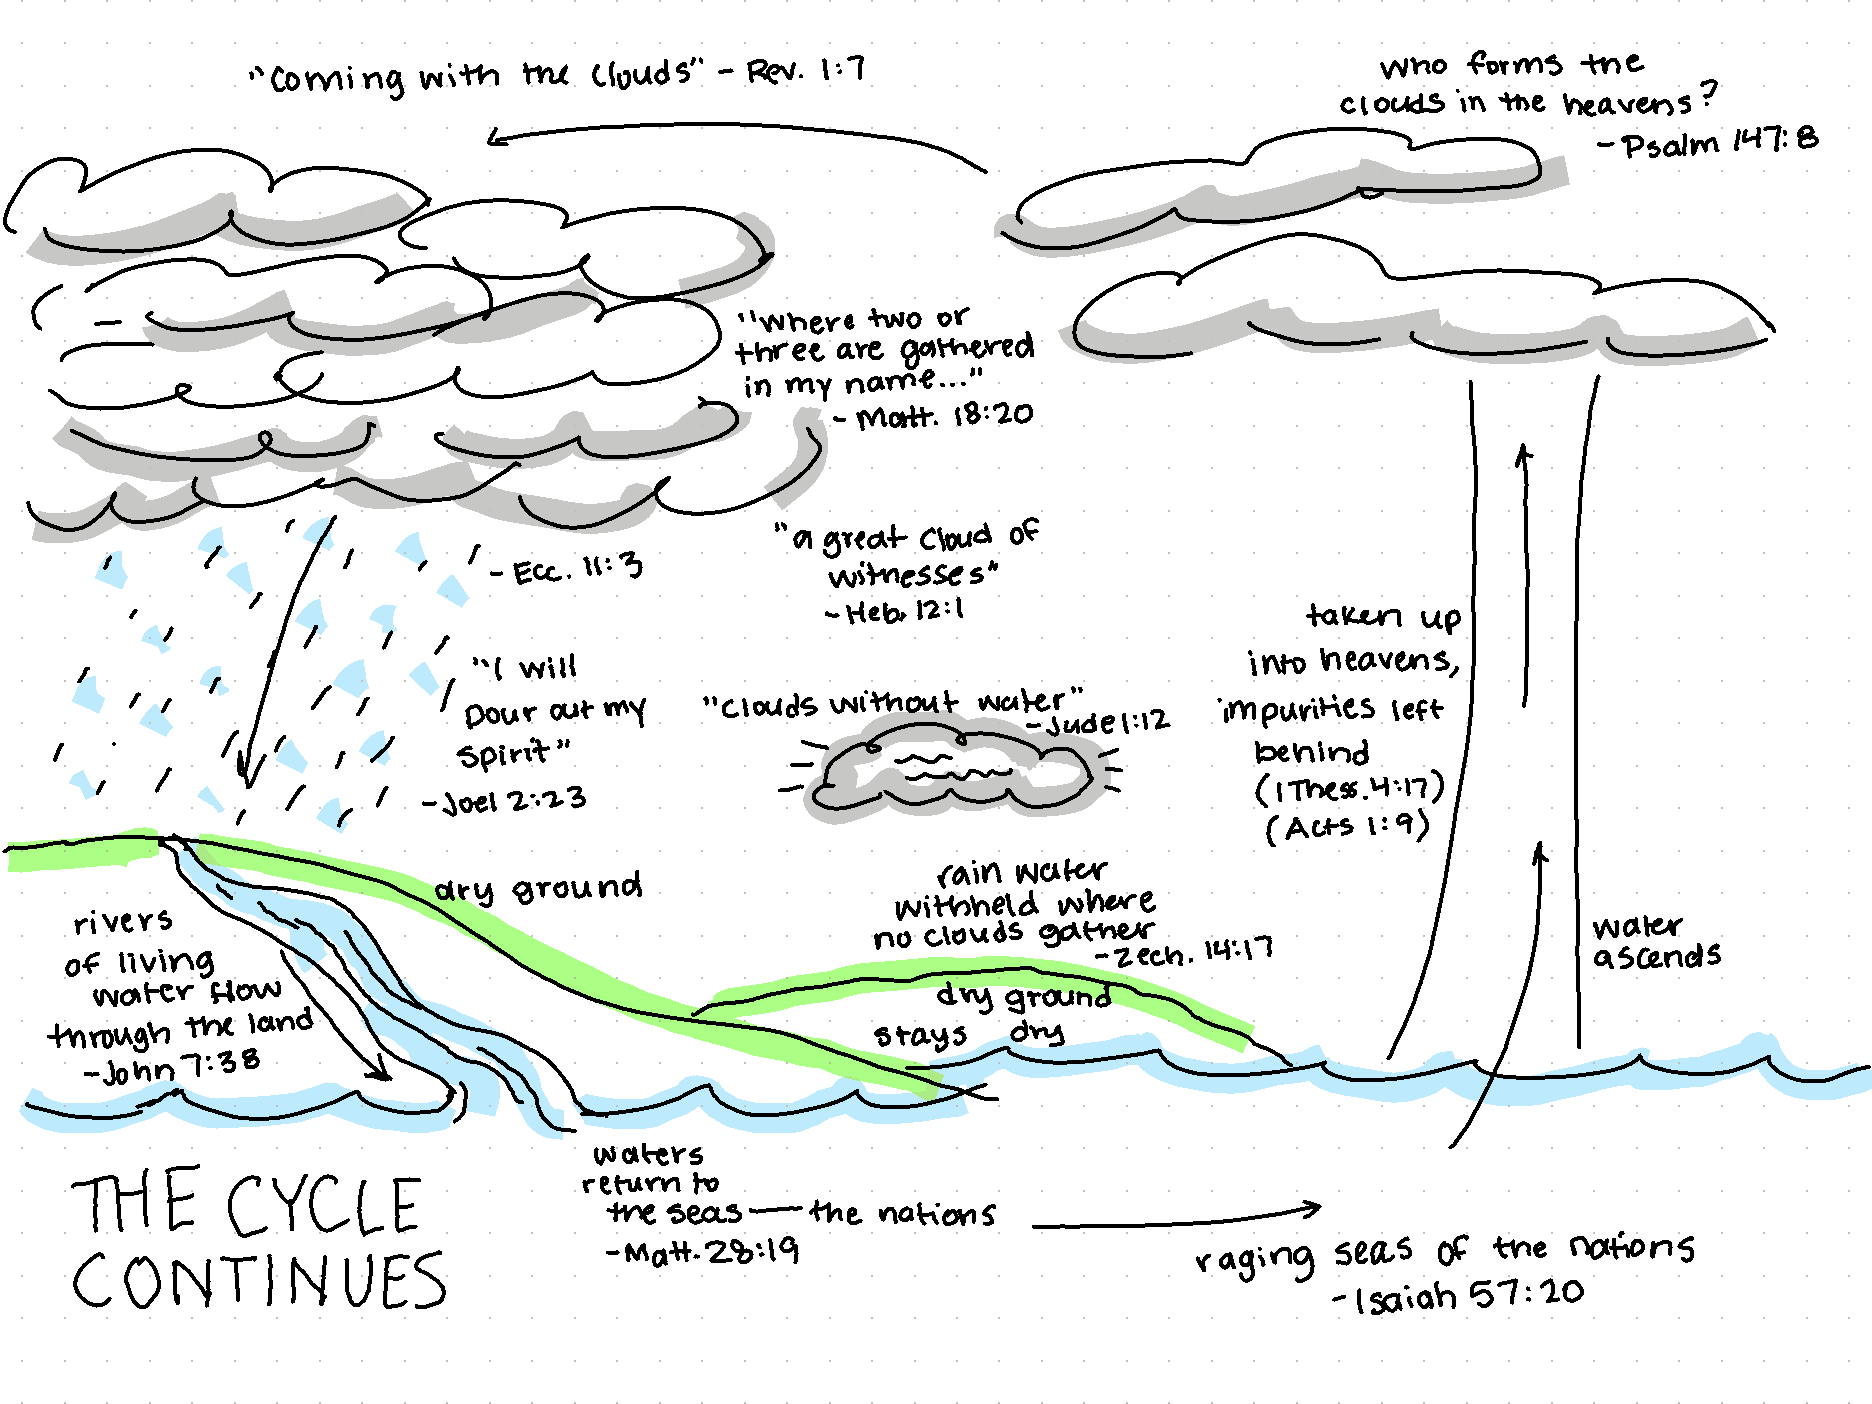 "Coming with the clouds" - Rev. 1:7
who forms the
clouds in the heavens?
- Psalm 147:8
"Where two or
three are gathered
in my name..."
- Matt. 18:20
"a great cloud of
witnesses"
- Heb. 12:1
- Ecc. 11:3
"I will
pour out my
spirit"
- Joel 2:23
"clouds without water"
- Jude 1:12
taken up
into heavens,
impurities left
behind
(1 Thess. 4:17)
(Acts 1:9)
water
ascends
dry ground
rain water
withheld where
no clouds gather
- Zech. 14:17
dry ground
stays dry
rivers
of living
water flow
through the land
- John 7:38
waters
return to
the seas — the nations
- Matt. 28:19
raging seas of the nations
- Isaiah 57:20
THE CYCLE
CONTINUES